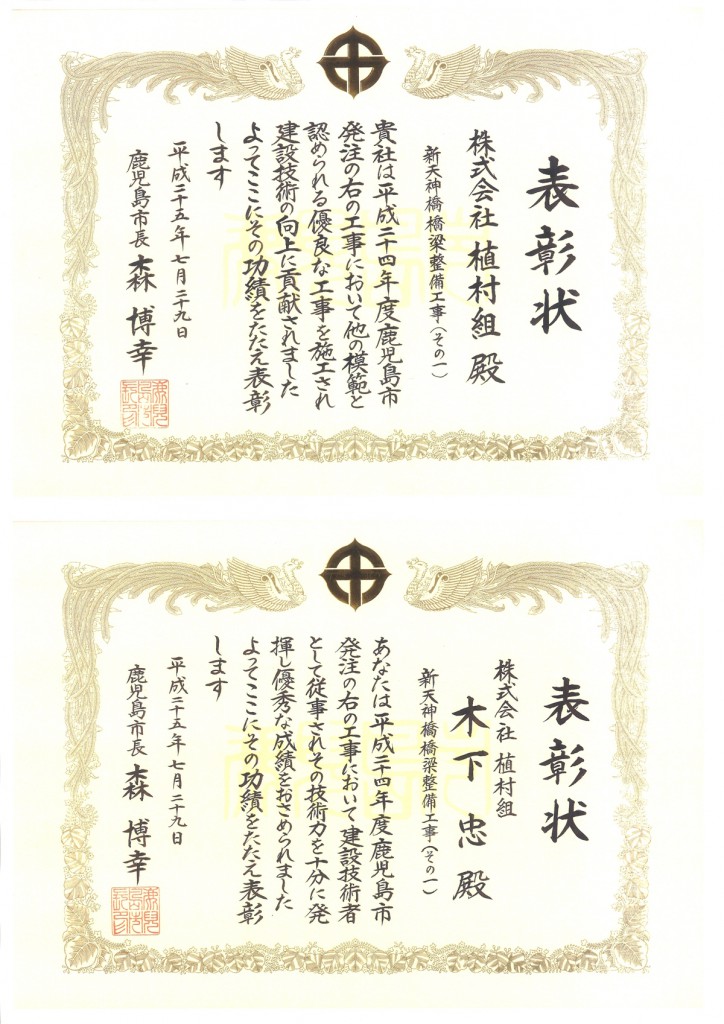 表彰状
株式会社 植村組 殿
新天神橋橋梁整備工事(その一)
貴社は平成二十四年度鹿児島市
発注の右の工事において他の模範と
認められる優良な工事を施工され
建設技術の向上に貢献されました
よってここにその功績をたたえ表彰
します
平成二十五年七月二十九日
鹿児島市長 森 博幸
表彰状
株式会社 植村組
木下 忠 殿
新天神橋橋梁整備工事(その一)
あなたは平成二十四年度鹿児島市
発注の右の工事において建設技術者
として従事されその技術力を十分に発
揮し優秀な成績をおさめられました
よってここにその功績をたたえ表彰
します
平成二十五年七月二十九日
鹿児島市長 森 博幸